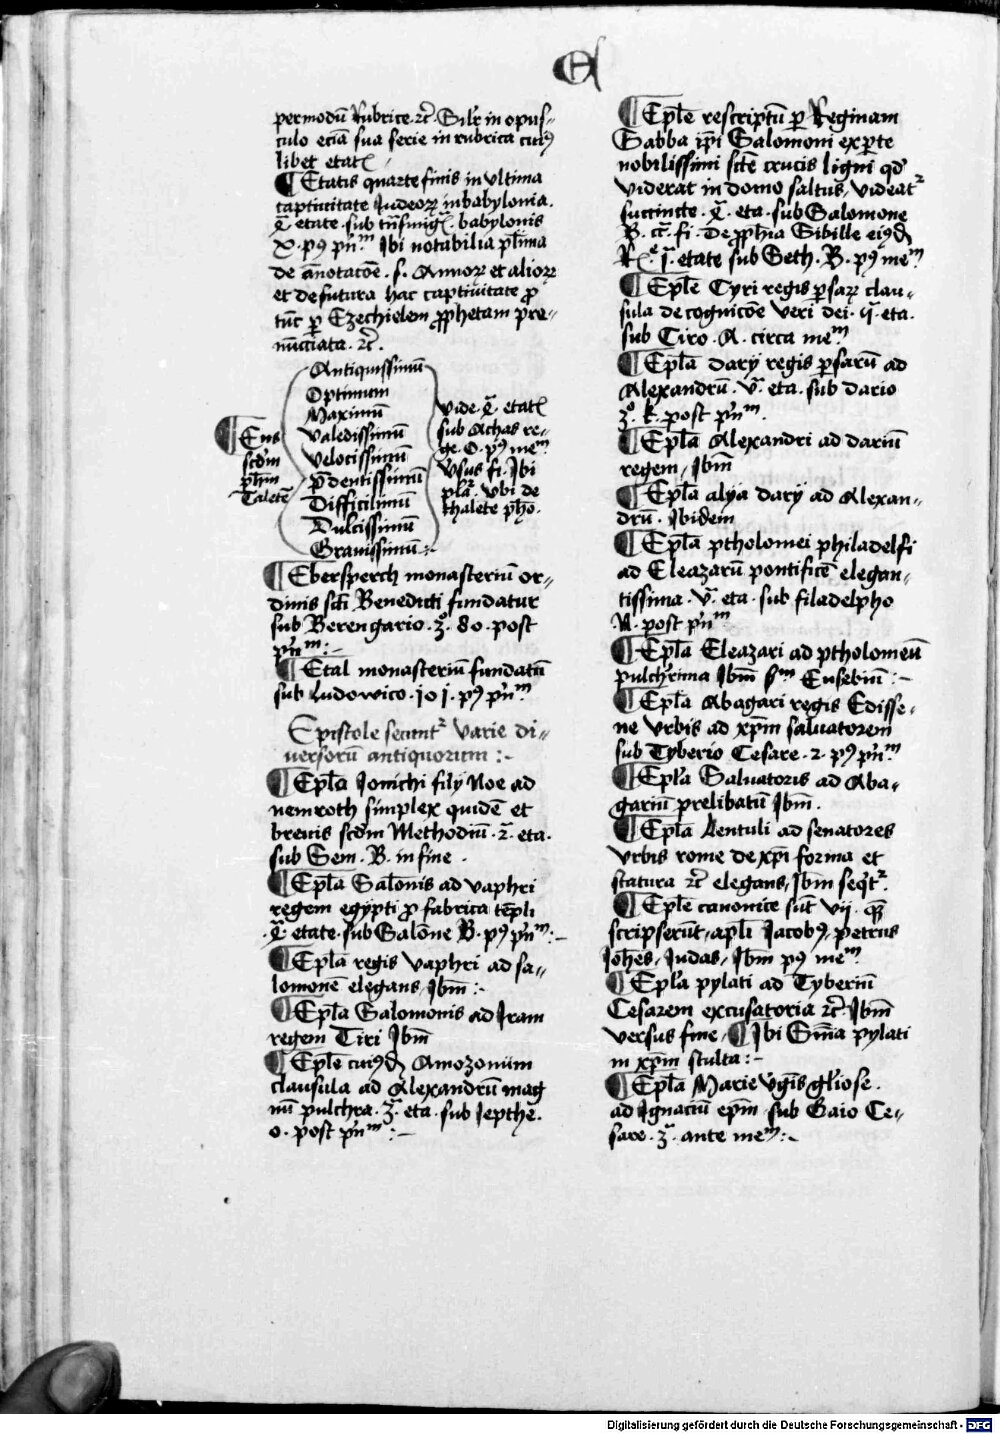 E
permodū Rubrice ⁊c̄. Silr̄ in opus-
culo eciā sua serie in rubrica cuiꝰ
libet etatꝭ.
¶ Etatis quarte finis in vltima
captiuitate Judeoꝝ in babylonia.
etate sub babylonis
x. pꝰ pn̄ᵐ Ibi notabilia pl̄ima
de ānotacōe. s. Annoꝝ et alioꝝ
et de futura hac captiuitate ꝓ
tūc ꝑ Ezechielem ꝓphetam pre-
nūciata. ⁊c̄.
¶ Ens
scd̄m
pl̄im
Taletē
Antiquissimū
Optimum
Maximū
Valedissimū
Velocissimū
Prudentissimū
Difficilimū
Dulcissimū
Grauissimū :-
vide etatꝭ
sub Achas re-
ge. O. pꝰ meᵐ
vsus fi. Ibi
vbi de
thalete pho.
¶ Ebersperch monasteriū or-
dinis scti Benedicti fundatur
sub Berengario. 3. 80. post
pn̄ᵐ :-
¶ Etal monasteriū fundatū
sub Ludowico. 101. pꝰ pn̄ᵐ.
Epistole secuntʳ varie di-
uersorū antiquorum :-
¶ Epl̄a Jonichi filij Noe ad
nemroth simplex quidē et
breuis scd̄m Methodiū. 2. eta.
sub Sem. B. in fine.
¶ Epl̄a Salonis ad vaphri
regem egypti ꝓ fabrica tēpli
etate. sub Salone B. pꝰ pn̄ᵐ :-
¶ Epl̄a regis vaphri ad sa-
lomonē elegans, Ibm̄ :-
¶ Epl̄a Salomonis ad Iram
regem Tiri Ibm̄
¶ Epl̄e Amozonum
clausula ad Alexandrū mag
nū pulchra. 3. eta. sub Jepthe.
o. post pn̄ᵐ :-
¶ Epl̄e rescriptū ꝑ Reginam
Sabba ip̄i Salomoni exꝑte
nobilissimi scte crucis ligni qd̄
viderat in domo saltus, videatʳ
succincte. eta. sub Salomone
B. cꝰ. fi. de ꝓphia Sibille
etate sub Seth. B. pꝰ meᵐ
¶ Epl̄e Cyri regis ꝑsaꝝ clau-
sula de cognicōe veri dei. eta.
sub Ciro. A. circa meᵐ
¶ Epl̄a darij regis ꝑsarū ad
Alexandrū. v. eta. sub dario
3. k. post pn̄ᵐ.
¶ Epl̄a Alexandri ad dariū
regem, Ibm̄
¶ Epl̄a alya darij ad Alexan-
drū. Ibidem
¶ Epl̄a ptholomei philadelfi
ad Eleazarū pontificē elegan-
tissima. v. eta. sub filadelpho
N. post pn̄ᵐ
¶ Epl̄a Eleazari ad ptholomeū
pulcherima Ibm̄ Eusebiū :-
¶ Epl̄a Abagari regis Edisse-
ne vrbis ad xp̄m saluatorem
sub Tyberio Cesare. 2. pꝰ pn̄ᵐ
¶ Epl̄a Saluatoris ad Aba-
garū prelibatū Ibm̄.
¶ Epl̄a Lentuli ad senatores
vrbis rome de xp̄i forma et
statura ⁊c̄ elegans, Ibm̄ seqtʳ.
¶ Epl̄e canonice sūt vij. qs̄
scripserūt, apl̄i Jacobꝰ, petrus
Johēs, Judas, Ibm̄ pꝰ meᵐ
¶ Epl̄a pylati ad Tyberiū
Cesarem excusatoria ⁊c̄ Ibm̄
versus fine, ¶ Ibi Sn̄ia pylati
in xp̄m stulta :-
¶ Epl̄a Marie vgīs gl̄iose.
ad Ignaciū epm̄ sub Gaio Ce-
sare. 3. ante meᵐ :-
Digitalisierung gefördert durch die Deutsche Forschungsgemeinschaft - DFG